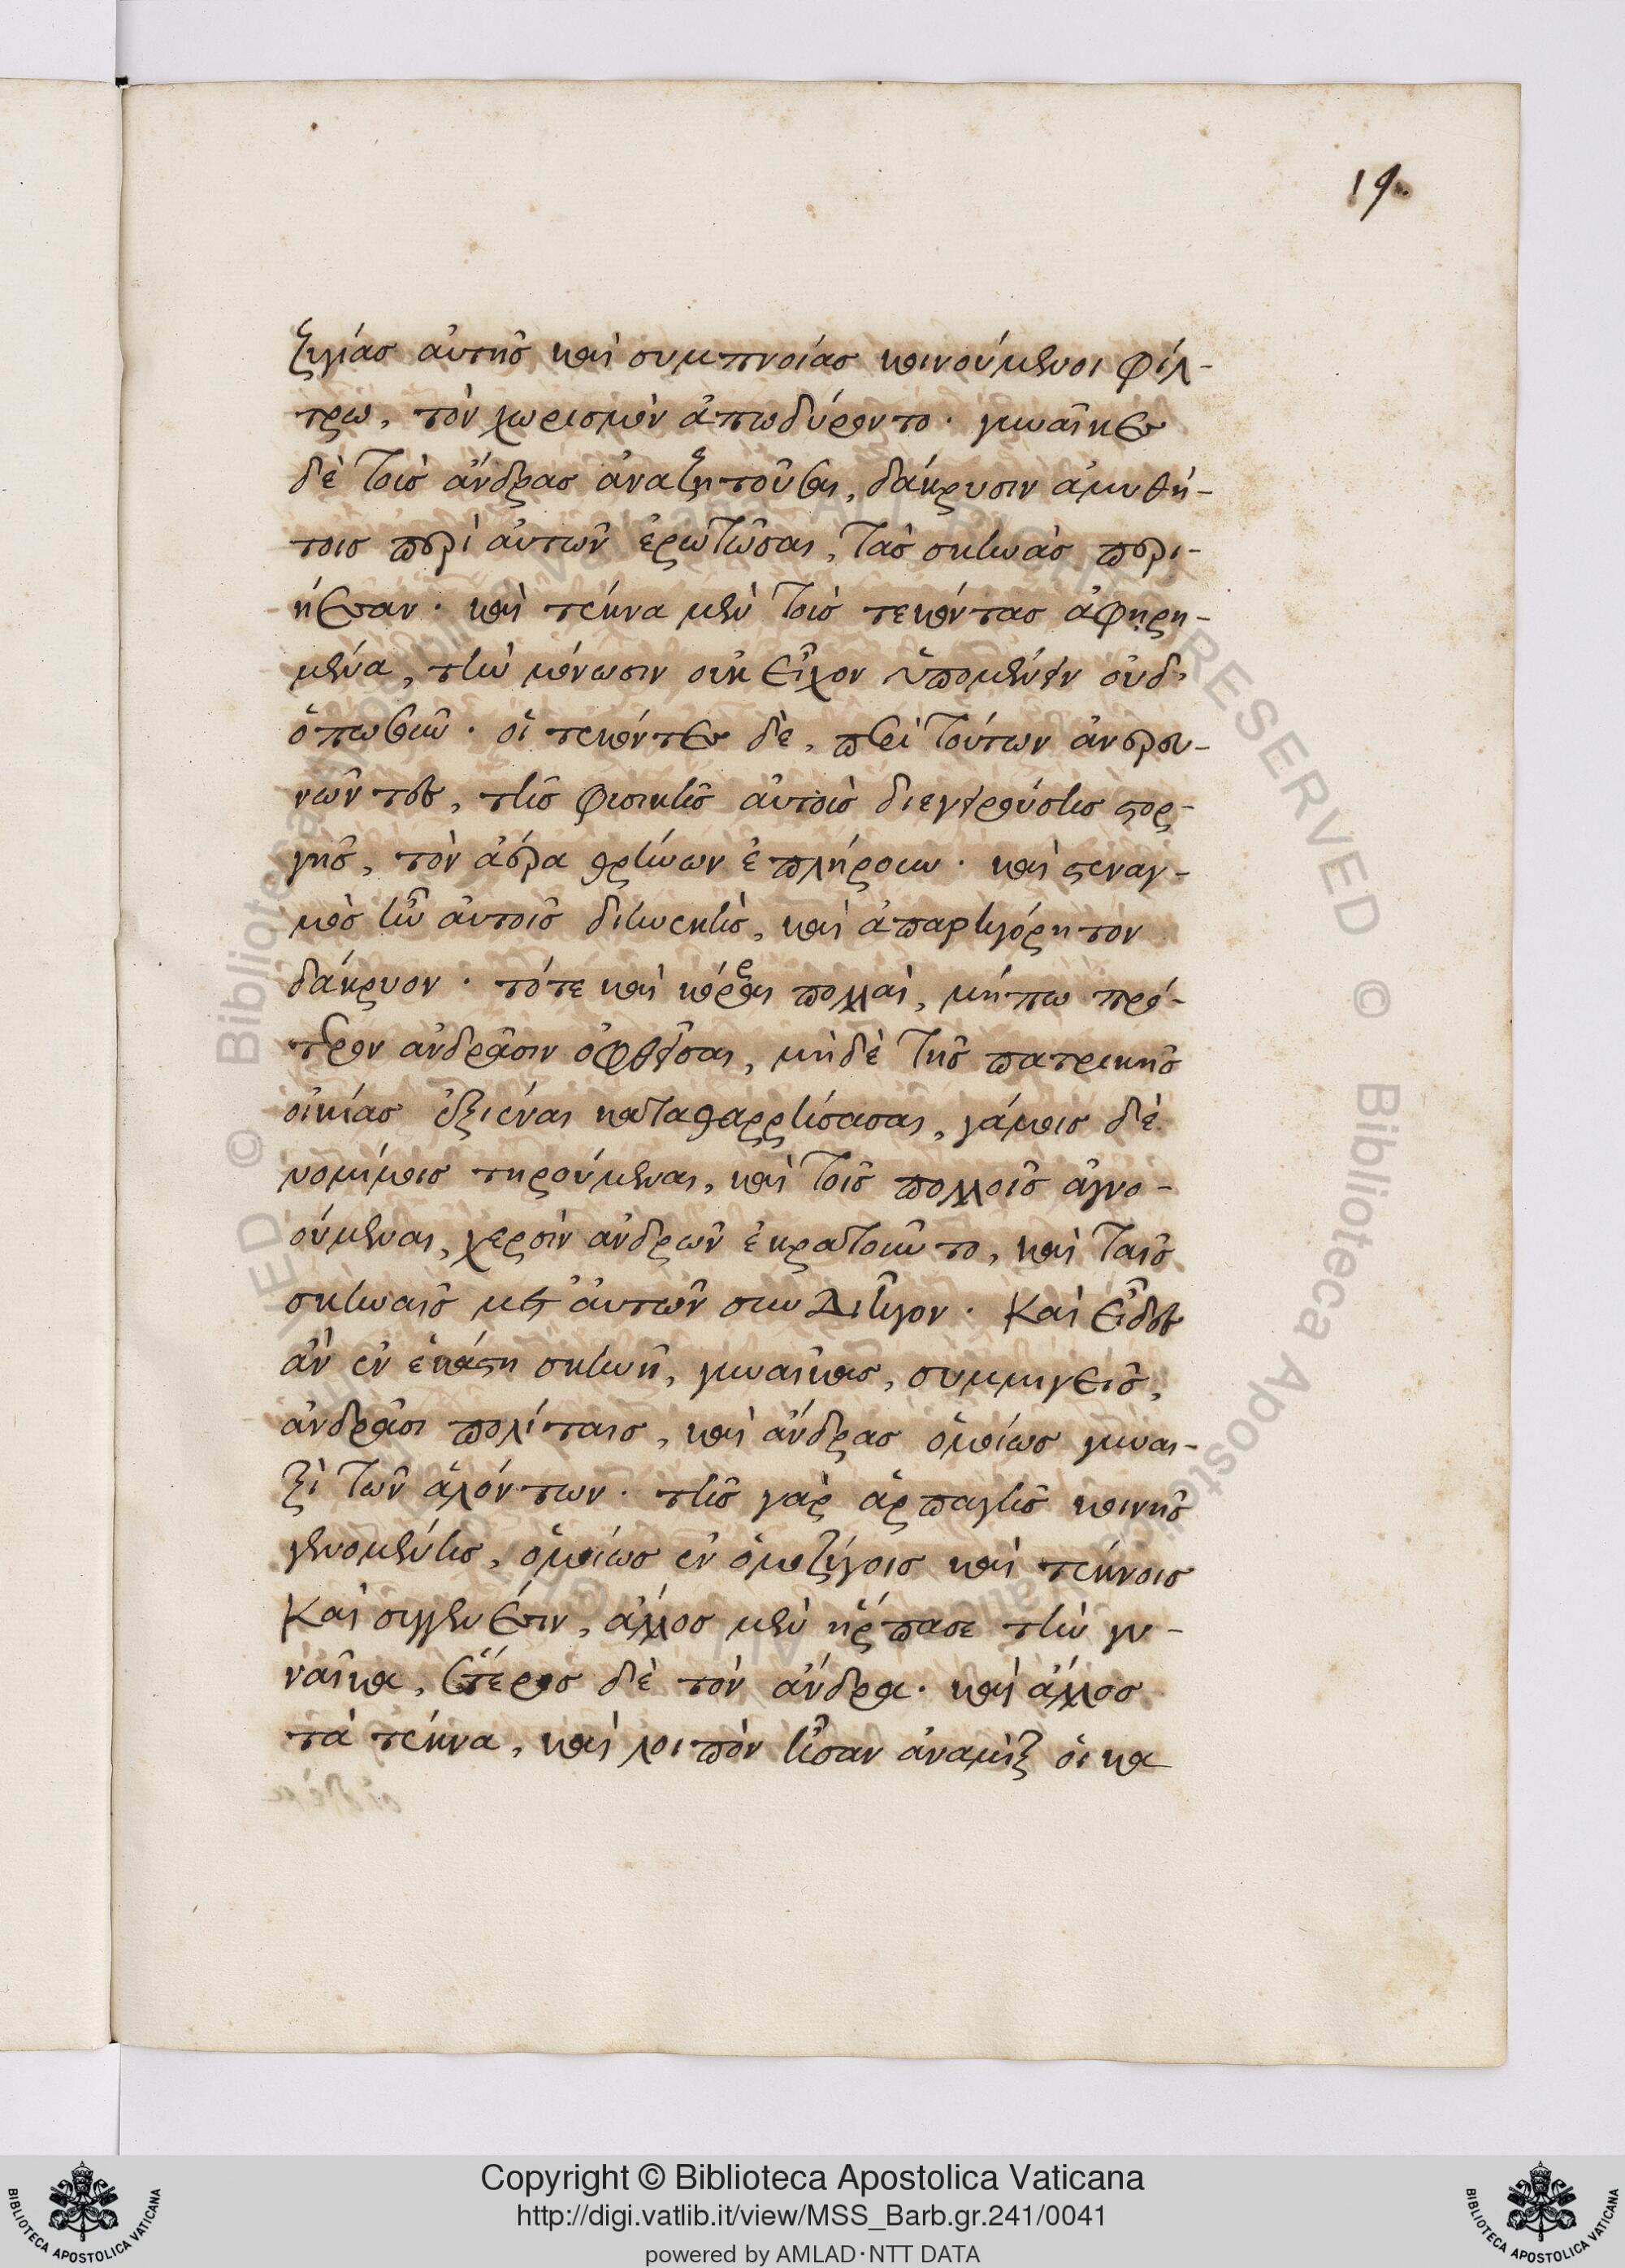 19.
ζυγίας αὐτῆς καὶ συμπνοίας κοινούμενοι φίλ-
τρω, τὸν χωρισμὸν ἀπωδύροντο. γυναῖκες
δὲ τοὺς ἄνδρας ἀναζητοῦσαι, δάκρυσιν ἀμυθή-
τοις περὶ αὐτῶν ἐρωτῶσαι, τὰς σκηνὰς περι-
ήεσαν. καὶ τέκνα μὲν τοὺς τεκόντας ἀφηρη-
μένα, τὴν μόνωσιν οὐκ εἶχον ὑπομένειν οὐδ'
ὁπωσοῦν. οἱ τεκόντες δὲ, περὶ τούτων ἀνερευ-
νῶντες, τῆς φυσικῆς αὐτοὺς διεγειρούσης στορ-
γῆς, τὸν ἀέρα θρήνων ἐπλήρουν. καὶ στεναγ-
μὸς ἦν αὐτοῖς διηνεκὴς, καὶ ἀπαρηγόρητον
δάκρυον. τότε καὶ κόραι πολλαὶ, μήπω πρό-
τερον ἀνδράσιν ὀφθεῖσαι, μὴδὲ τῆς πατρικῆς
οἰκίας ἐξιέναι καταθαρρήσασαι, γάμοις δὲ
νομίμοις τηρούμεναι, καὶ τοῖς πολλοῖς ἀγνο-
ούμεναι, χερσὶν ἀνδρῶν ἐκρατοῦντο, καὶ ταῖς
σκηναῖς μετ' αὐτῶν συνδιῆγον. Καὶ εἶδες
ἂν ἐν ἑκάστη σκηνῆ, γυναῖκας, συμμιγεῖς,
ἀνδράσι πολίταις, καὶ ἄνδρας ὁμοίως γυναι-
ξὶ τῶν ἁλόντων. τῆς γὰρ ἁρπαγῆς κοινῆς
γενομένης, ὁμοίως ἐν ὁμοζύγοις καὶ τέκνοις
Καὶ συγγενέσιν, ἄλλος μὲν ἥρπασε τὴν γυ-
ναῖκα, ἕτερος δὲ τὸν ἄνδρα. καὶ ἄλλος
τὰ τέκνα, καὶ λοιπὸν ἦσαν ἀναμὶξ οἱ κα
Copyright © Biblioteca Apostolica Vaticana
http://digi.vatlib.it/view/MSS_Barb.gr.241/0041
powered by AMLAD·NTT DATA
BIBLIOTECA APOSTOLICA VATICANA
BIBLIOTECA APOSTOLICA VATICANA